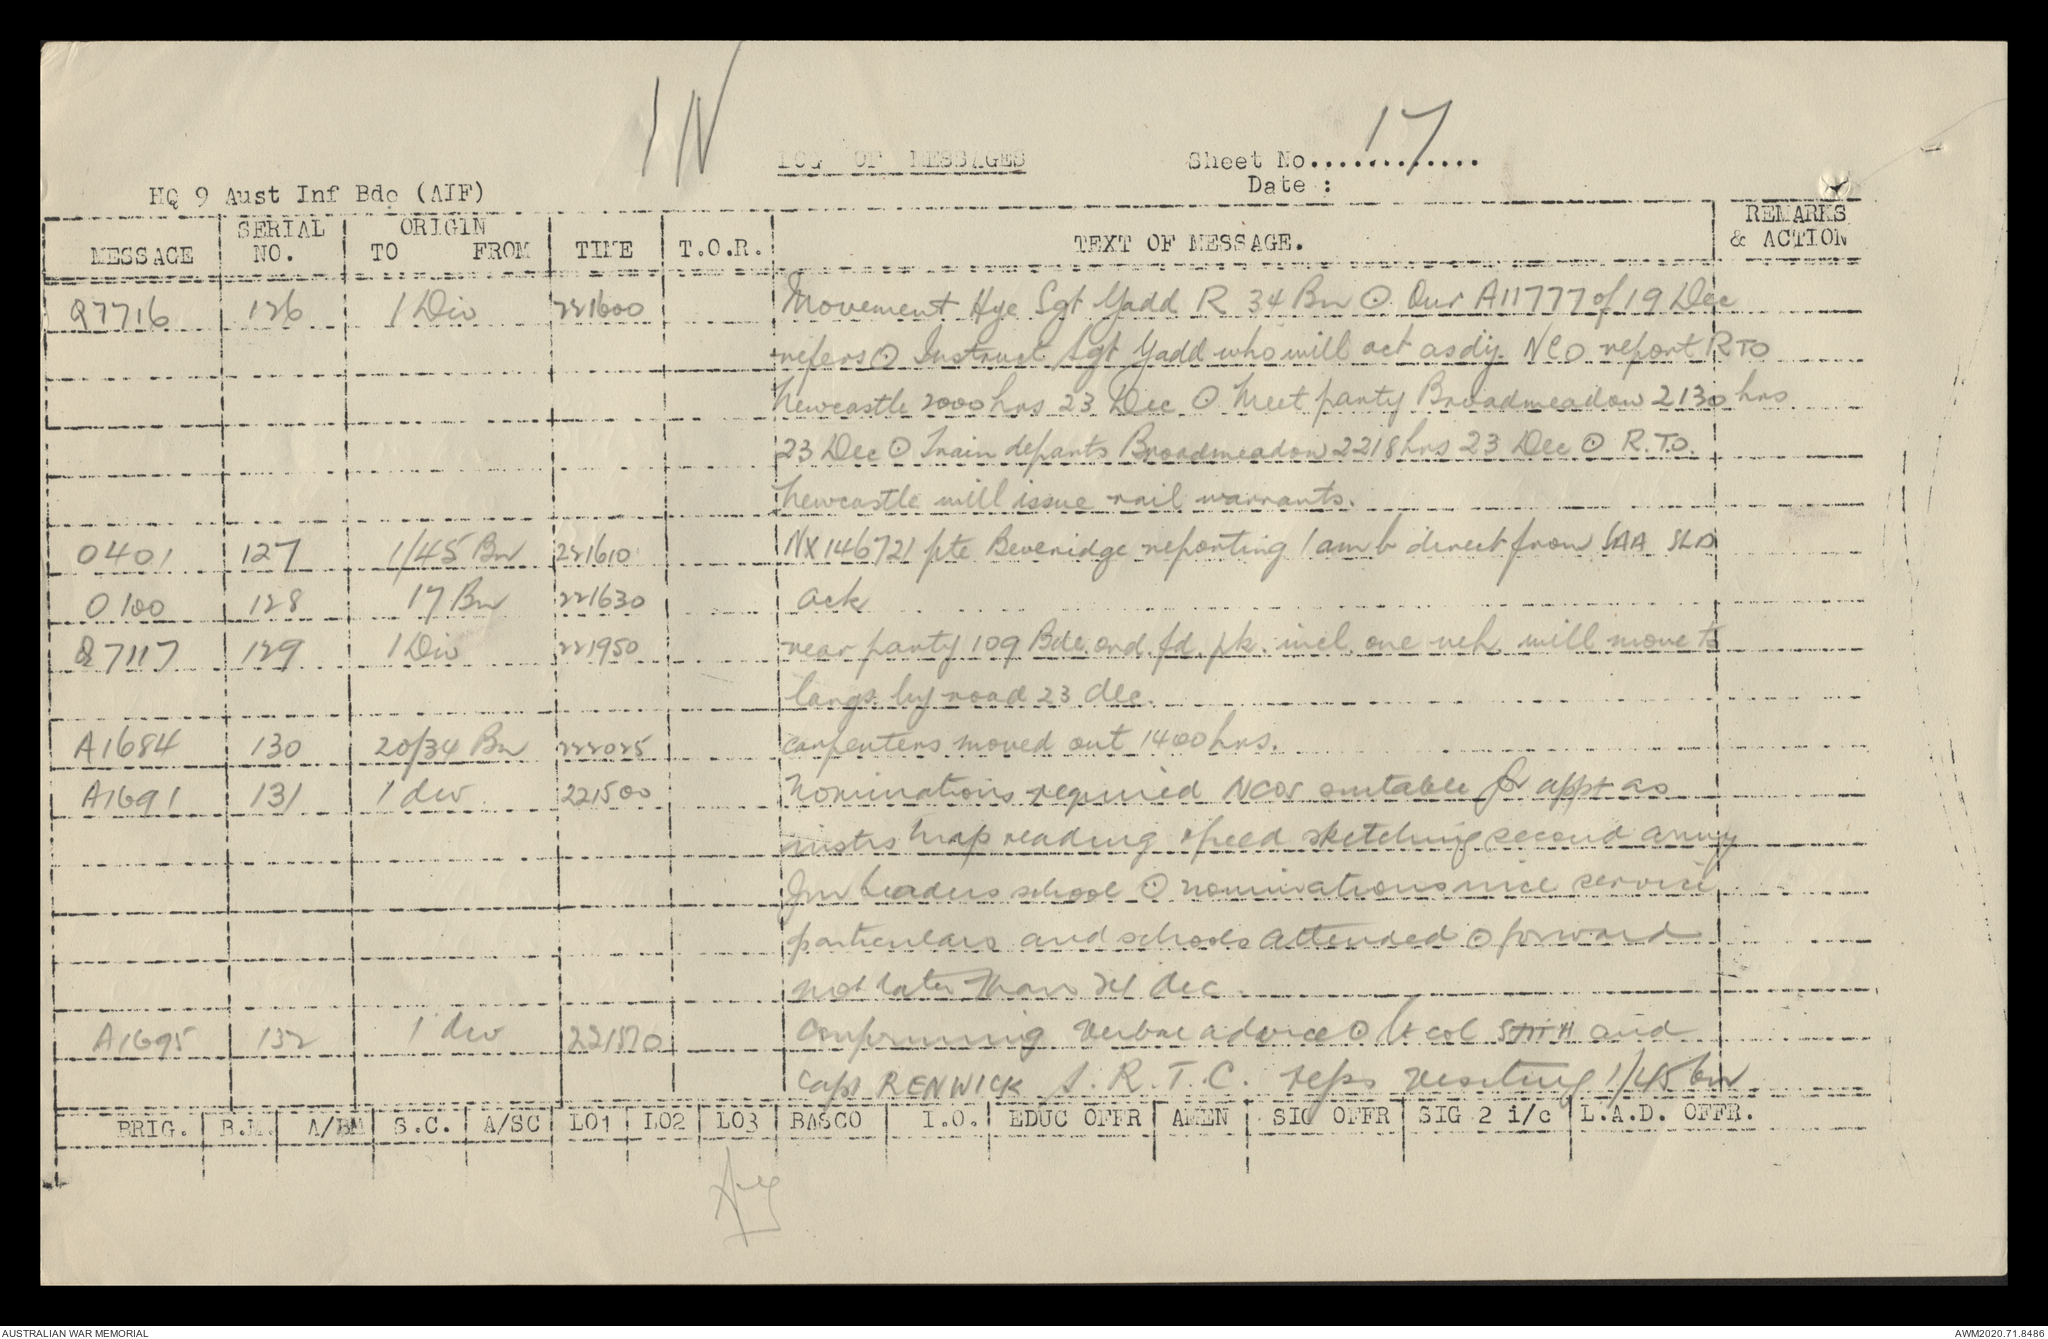 IN
LOG OF MESSAGES
Sheet No............. 17
Date :
HQ 9 Aust Inf Bde (AIF)
MESSAGE SERIAL NO. ORIGIN TO FROM TIME T.O.R. TEXT OF MESSAGE. REMARKS & ACTION
Q7716 126 1 Div 221600 Movement Hye Sgt Yadd R 34 Bn ⊙ Our A11777 of 19 Dec
refers ⊙ Instruct Sgt Yadd who will act as dy. NCO report RTO
Newcastle 2000 hrs 23 Dec ⊙ Meet party Broadmeadow 2130 hrs
23 Dec ⊙ Train departs Broadmeadow 2218 hrs 23 Dec ⊙ R.T.O.
Newcastle will issue rail warrants.
O401 127 1/45 Bn 221610 NX146721 pte Beveridge reporting 1 amb direct from
O100 128 17 Bn 221630 ack
Q7117 129 1 Div 221950 rear party 109 Bde. ord. fd. pk. incl. one veh. will move to
langs. by road 23 dec.
A1684 130 20/34 Bn 222025 carpenters moved out 1400 hrs.
A1691 131 1 div 221500 Nominations required NCOs suitable for appt as
instrs map reading speed sketching second army
Jnr leaders school ⊙ nominations service
particulars and schools attended ⊙ forward
not later than 24 dec
A1695 132 1 div Confirming verbal advice ⊙ Lt col and
Capt RENWICK S.R.T.C. reps visiting 1/45 bn
BRIG. B.M. A/BM S.C. A/SC LO1 LO2 LO3 BASCO I.O. EDUC OFFR AMEN SIG OFFR SIG 2 i/c L.A.D. OFFR.
AUSTRALIAN WAR MEMORIAL
AWM2020.71.8486